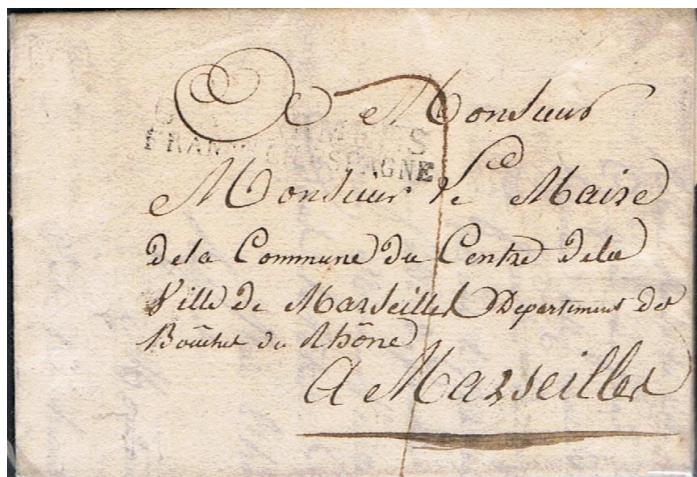 A Monsieur
FRAN ESPAGNE
Monsieur le Maire
de la Commune du Centre de la
Ville de Marseilles Departement des
Boûches du Rhône
A Marseilles